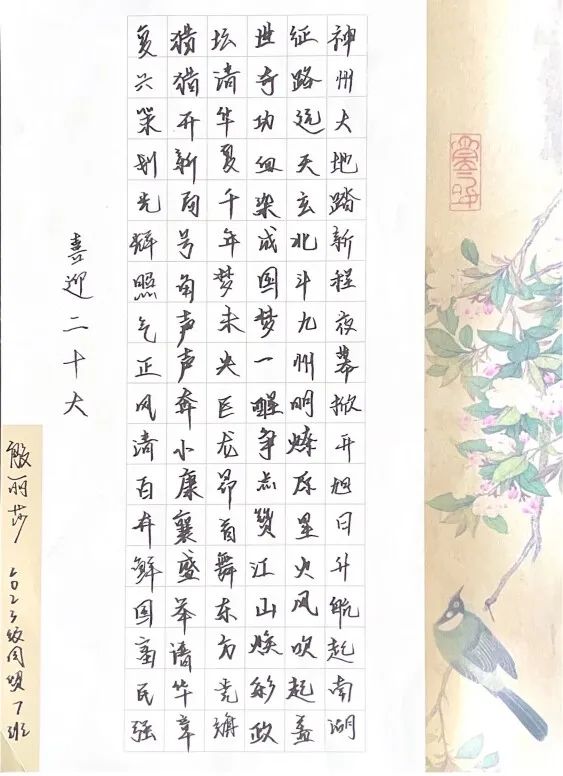 神州大地踏新程夜幕掀开旭日升航起南湖
征路远天玄北斗九州明燎原星火风吹起盖
世奇功血染成国梦一醒争点赞江山焕彩政
坛清华夏千年梦未央巨龙昂首舞东方党旗
猎猎开新局号角声声奔小康襄盛举谱华章
复兴策划光辉照气正风清百卉鲜国富民强
喜迎二十大
殷丽莎 2023级 7班